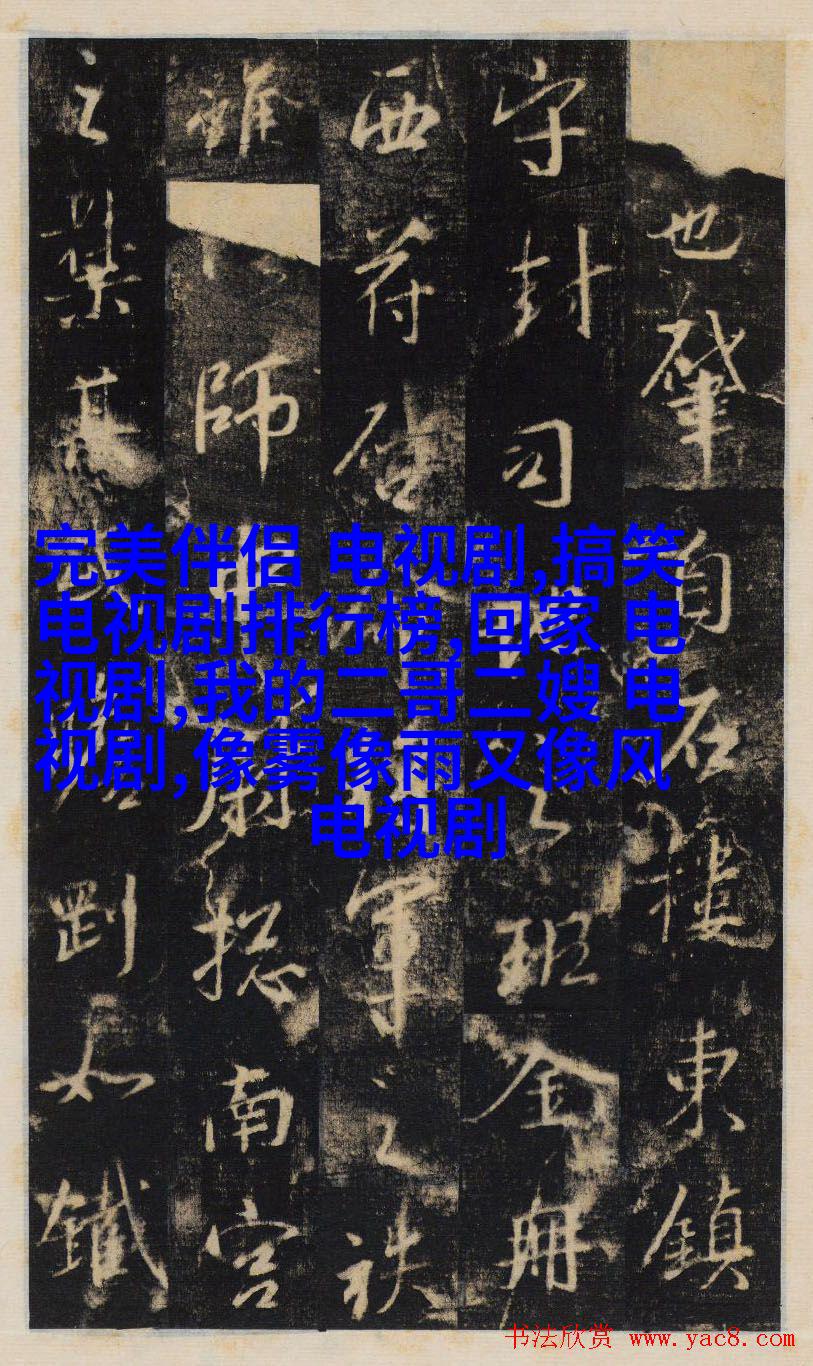 也肇自石樓東鎮
守封司之班金冊
西符啓軍之秩
雖師總南宮
之集其剛如鐵
完美伴侣 电视剧,搞笑
电视剧排行榜,回家 电
视剧,我的二哥二嫂 电
视剧,像雾像雨又像风
电视剧
书法欣赏 www.yac8.com